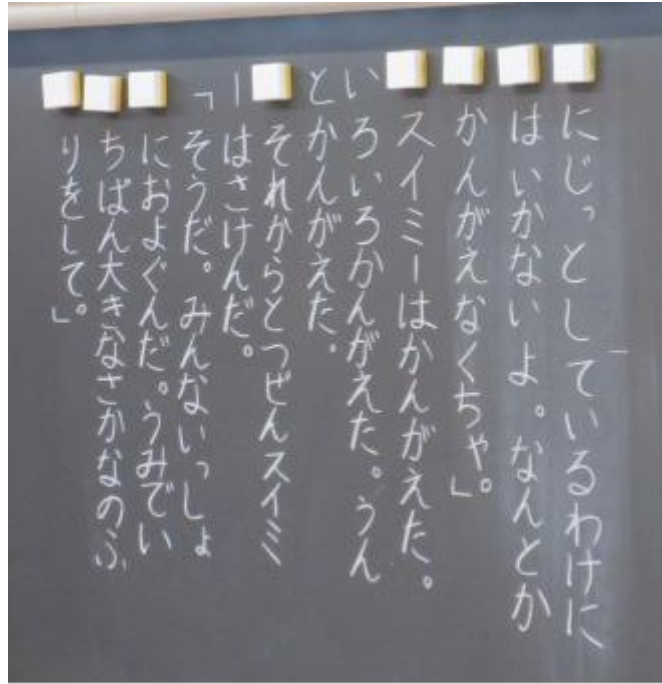 にじっとしているわけに
はいかないよ。なんとか
かんがえなくちゃ。」
スイミーはかんがえた。
いろいろかんがえた。うん
とかんがえた。
それからとつぜんスイミ
ーはさけんだ。
「そうだ。みんないっしょ
におよぐんだ。うみでい
ちばん大きなさかなのふ
りをして。」